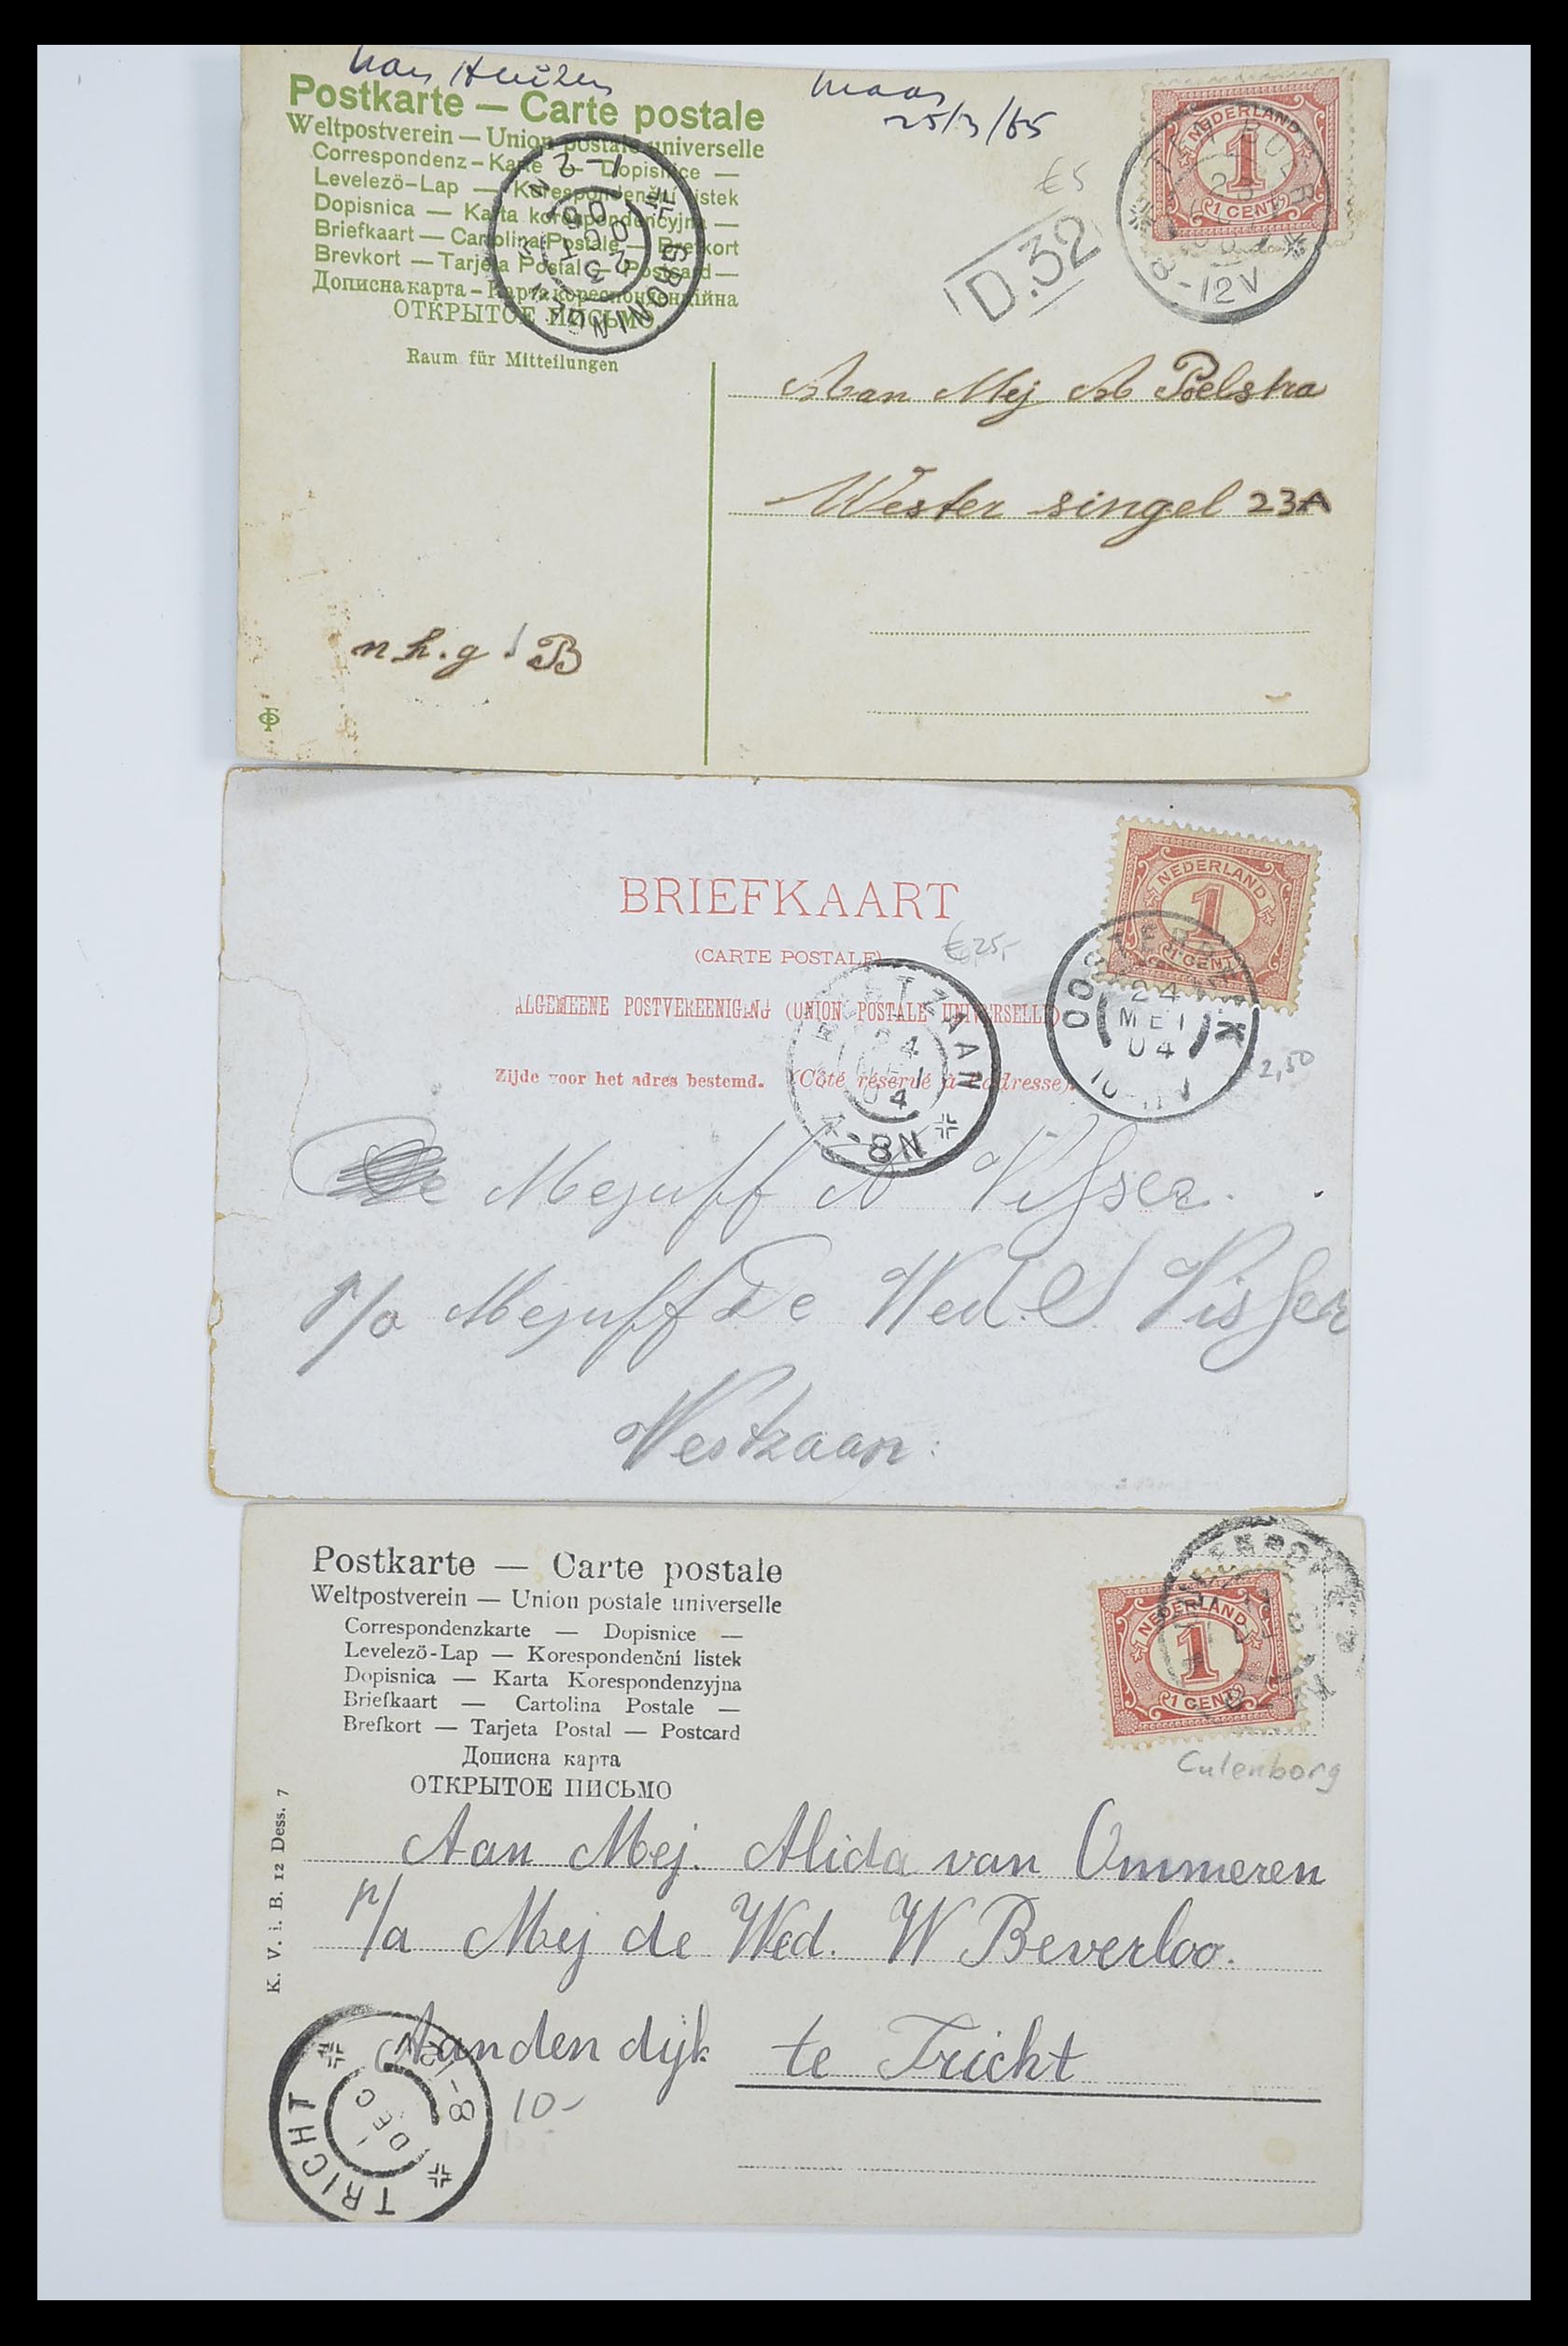 25/3/65
Postkarte — Carte postale
Weltpostverein — Union postale universelle
Correspondenz-Karte — Dopisnice —
Levelező-Lap — Korespondenční listek
Dopisnica — Karta korespondencyjna —
Briefkaart — Cartolina Postale — Brefkort
Brevkort — Tarjeta Postal — Postcard —
Дописна карта – Карта кореспонденційна
ОТКРЫТОЕ ПИСЬМО
Raum für Mitteilungen
NEDERLAND
1
1 CENT
8-12V
€5
D.32
GRONINGEN
1-2N
Aan Mej A Poelstra
Wester singel 23A
n h. g B
BRIEFKAART
(CARTE POSTALE)
ALGEMEENE POSTVEREENIGING (UNION POSTALE UNIVERSELLE)
Zijde voor het adres bestemd. (Côté réservé à l'adresse).
NEDERLAND
1
1 CENT
€25,-
2,50
24
MEI
04
WESTZAAN
24
MEI
04
-8N
De Mejuff A Visser.
p/a Mejuff De Wed. S Visser
Westzaan
Postkarte — Carte postale
Weltpostverein — Union postale universelle
Correspondenzkarte — Dopisnice —
Levelező-Lap — Korespondenční listek
Dopisnica — Karta Korespondenzyjna
Briefkaart — Cartolina Postale —
Brefkort — Tarjeta Postal — Postcard
Дописна карта
ОТКРЫТОЕ ПИСЬМО
NEDERLAND
1
1 CENT
Culenborg
K. V. i. B. 12 Dess. 7
Aan Mej. Alida van Ommeren
p/a Mej de Wed. W Beverloo.
Aanden dijk te Tricht
TRICHT
DEC
10-